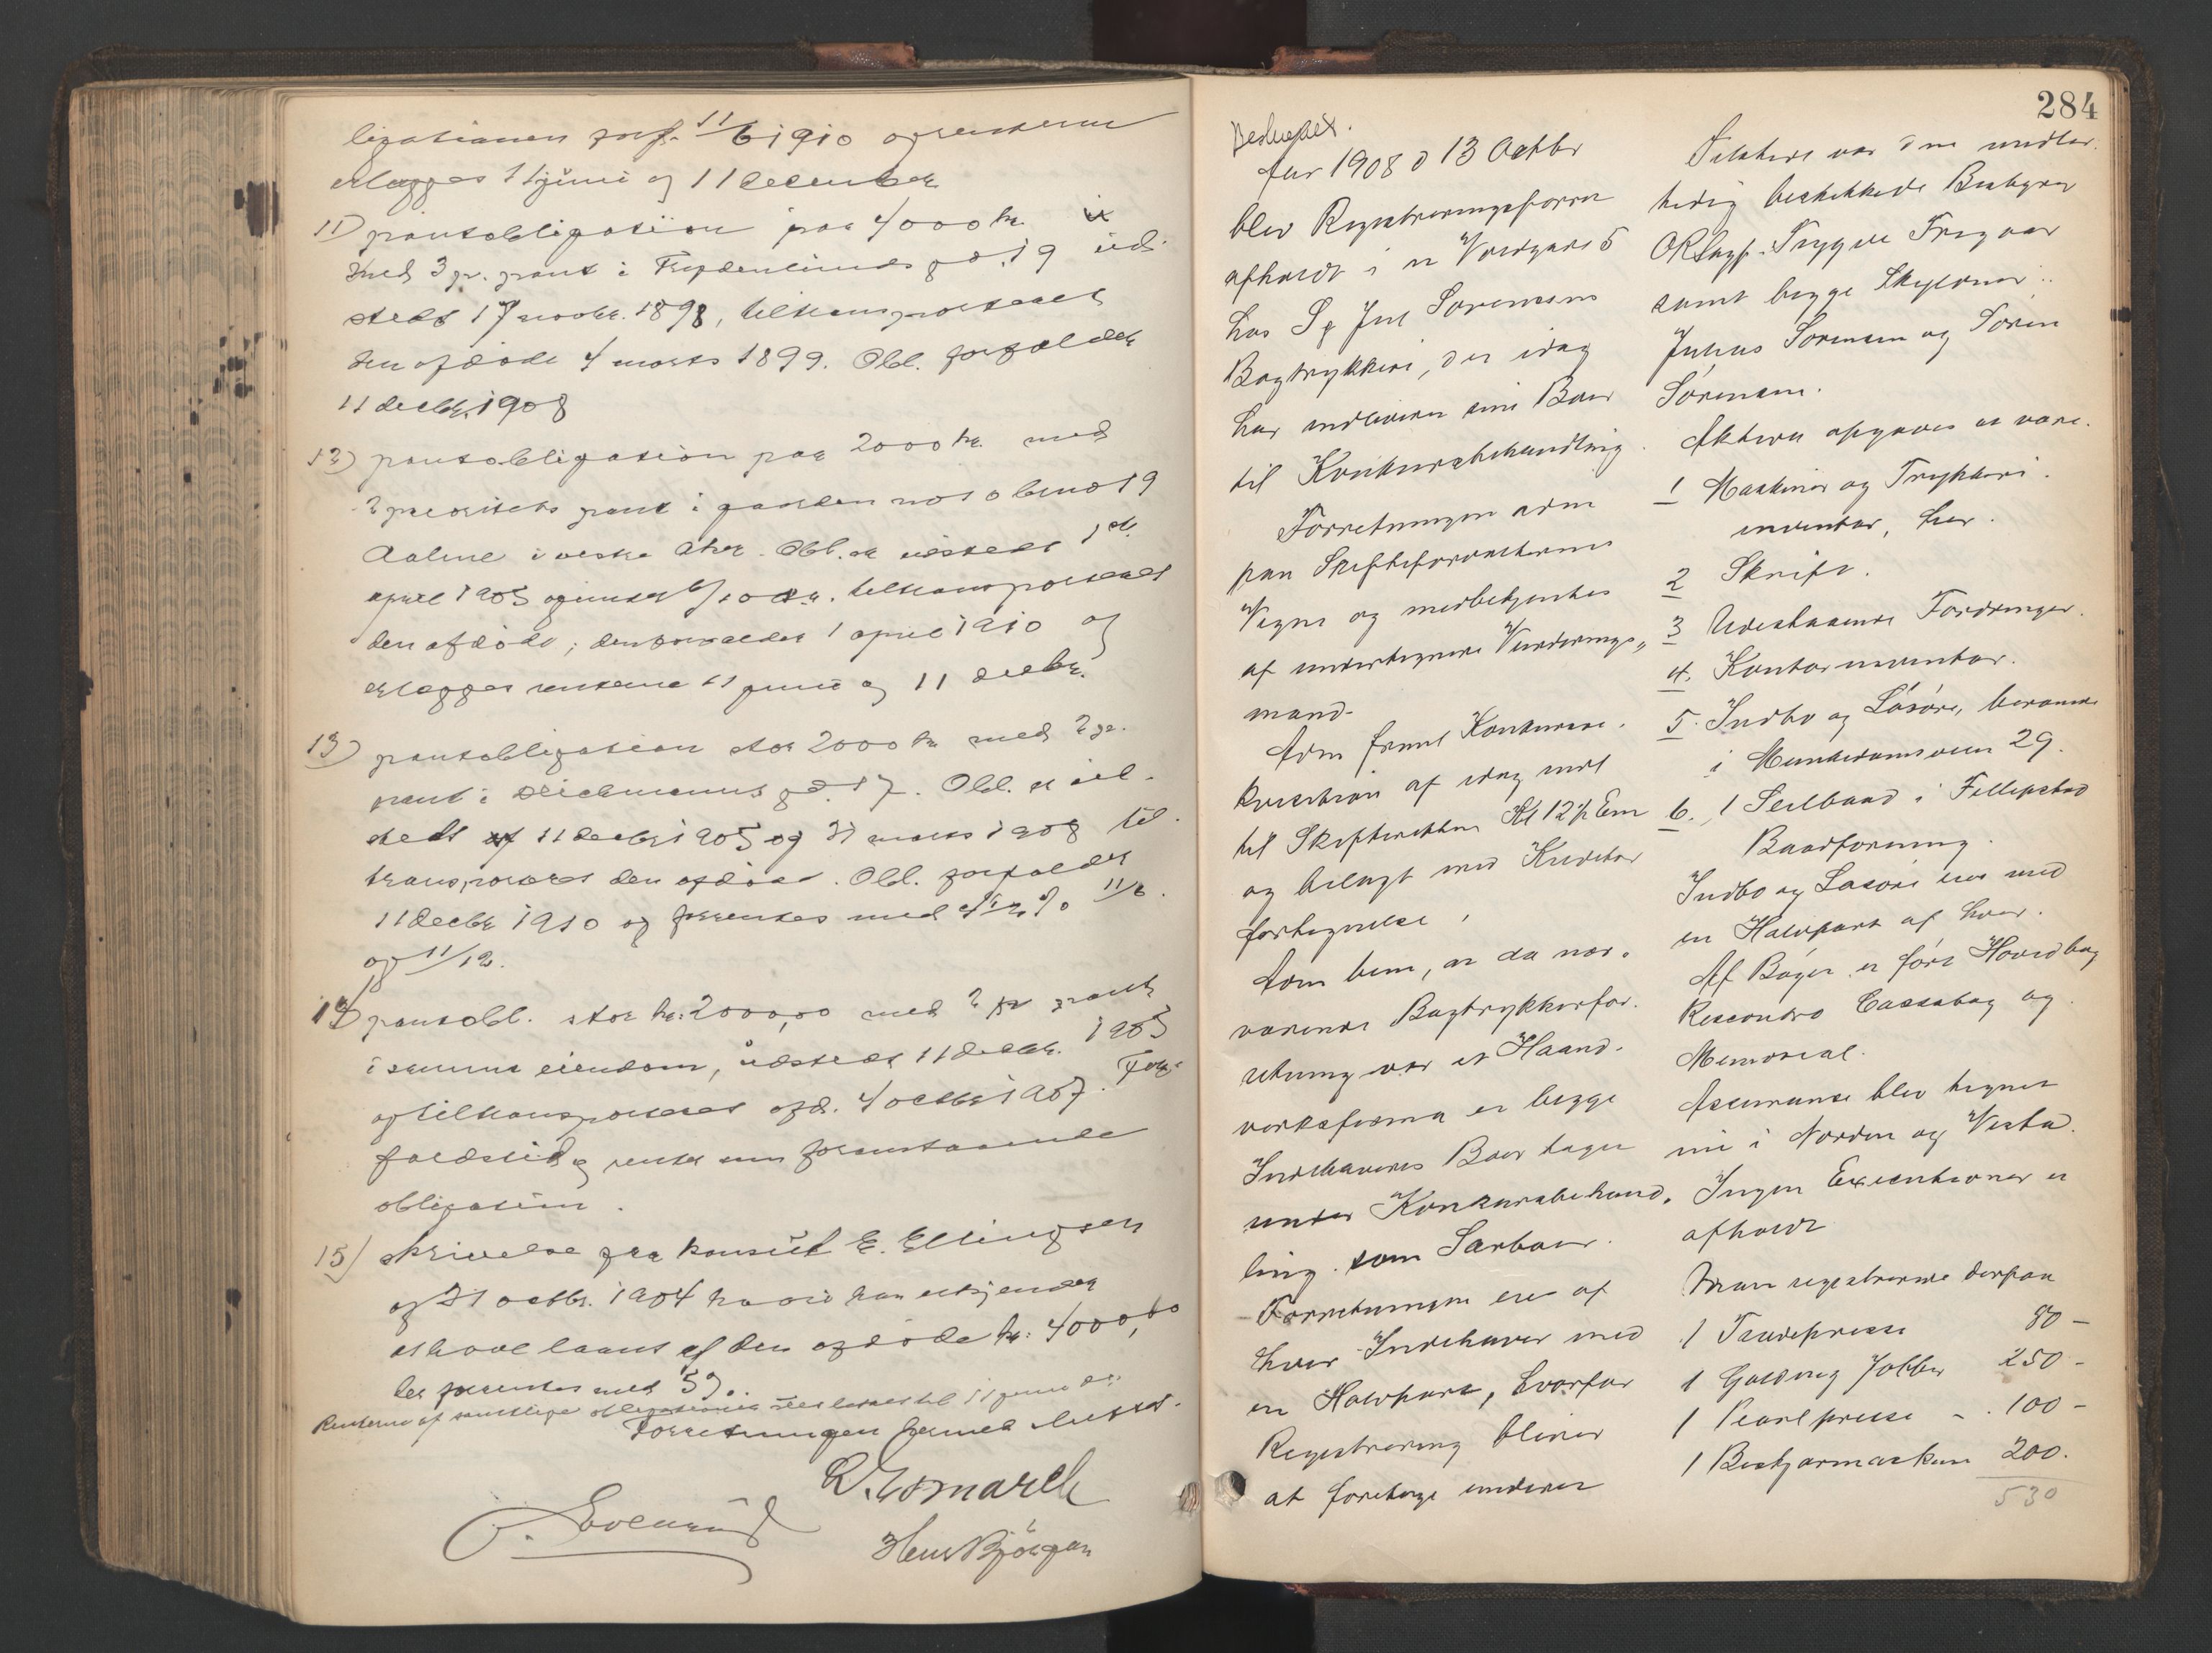 ligationen forf. 11/6 1910 og renterne
erlægges 11 juni og 11 december
11) pantobligation paa 4000 kr.
med 3 pr. pant i Frydenlunds gd. 19 ud-
stedt 17 novbr. 1898, transporteret
den afdøde 4 marts 1899. Obl. forfalder
11 decbr. 1908
12) pantobligation paa 2000 kr. med
2 prioritets pant i gaarden no 1 o bno 19
i vestre Aker. Obl. er udstedt 1ste
april 1905 og tiltransporteret
den afdøde; den forfalder 1 april 1910 og
erlægges renterne 11 juni og 11 decbr.
13) pantobligation stor 2000 kr med 2 pr.
pant i Deichmanns gd. 17. Obl. er ud-
stedt 11 decbr 1905 og 31 marts 1908 til-
transporteret den afdøde. Obl. forfalder
11 decbr 1910 og forrentes med 4 1/2 % 11/6
og 11/12.
14) pantobl. stor kr. 2000,00 med 2 pr pant
i samme eiendom, udstedt 11 decbr. 1905
og tiltransporteret afd. 4 octbr 1907. For-
faldstid og renter som foranstaaende
obligation.
15) skrivelse fra konsul E. Ellingsen
af 31 octbr. 1904 hvori han erkjender
at have laant af den afdøde kr: 4000,00
der forrentes med 5 %.
Renterne af samtlige obligationer er betalt til 11 juni d.a.
Forretningen hermed sluttet.
L. Esmarch
Hans Bjørgan
284
Beskrevet.
Aar 1908 d 13 Octbr
blev Registreringsforret
afholdt i No Voldgade 5
hos S & Jul Sørensens
Bogtrykkeri, der idag
har indleveret sine Boer
til Konkursbehandling.
Forretningen adm
paa Skifteforvalterens
Vegne og medbetjentes
af undertegnede Vurderings-
mænd.
Adm freml Konkursre-
kvisition af idag indl
til Skifteretten Kl 12 1/2 Em
og bilagt med Kreditor
fortegnelse.
Adm bem, at da nær-
værende Bogtrykkerfor-
retning var et Haand-
verksfirma er begge
Indehaveres Boer tagen
under Konkursbehand-
ling som Særboer.
Forretningen eies af
hver Indehaver med
en Halvpart, hvorfor
Registrering bliver
at foretage under et
Tilstede var den midler-
tidig beskikkede Bestyrer
ORSagf. Trygve Frigaar
samt begge Skyldnere:
Julius Sørensen og Søren
Sørensen.
Aktiva opgaves at være.
1 Maskiner og Trykkeri-
inventar, her.
2 Skrift.
3 Udestaaende Fordringer.
4. Kontorinventar.
5. Indbo og Løsøre, beroende
i Munkedamsveien 29.
6. 1 Seilbaad i Fillipstad
Baadforening.
Indbo og Løsøre eies med
en Halvpart af hver.
Af Bøger er ført Hovedbog
Rescontro Cassabog og
Memorial.
Assurance blev tegnet
ine i Norden og Vesta.
Ingen Executioner er
afholdt
Man registrerede derpaa
1 Tiudepresse 80 -
1 Golding Jobber 250 -
1 Pearl presse - 100 -
1 Beskjærmaskin 200.
530